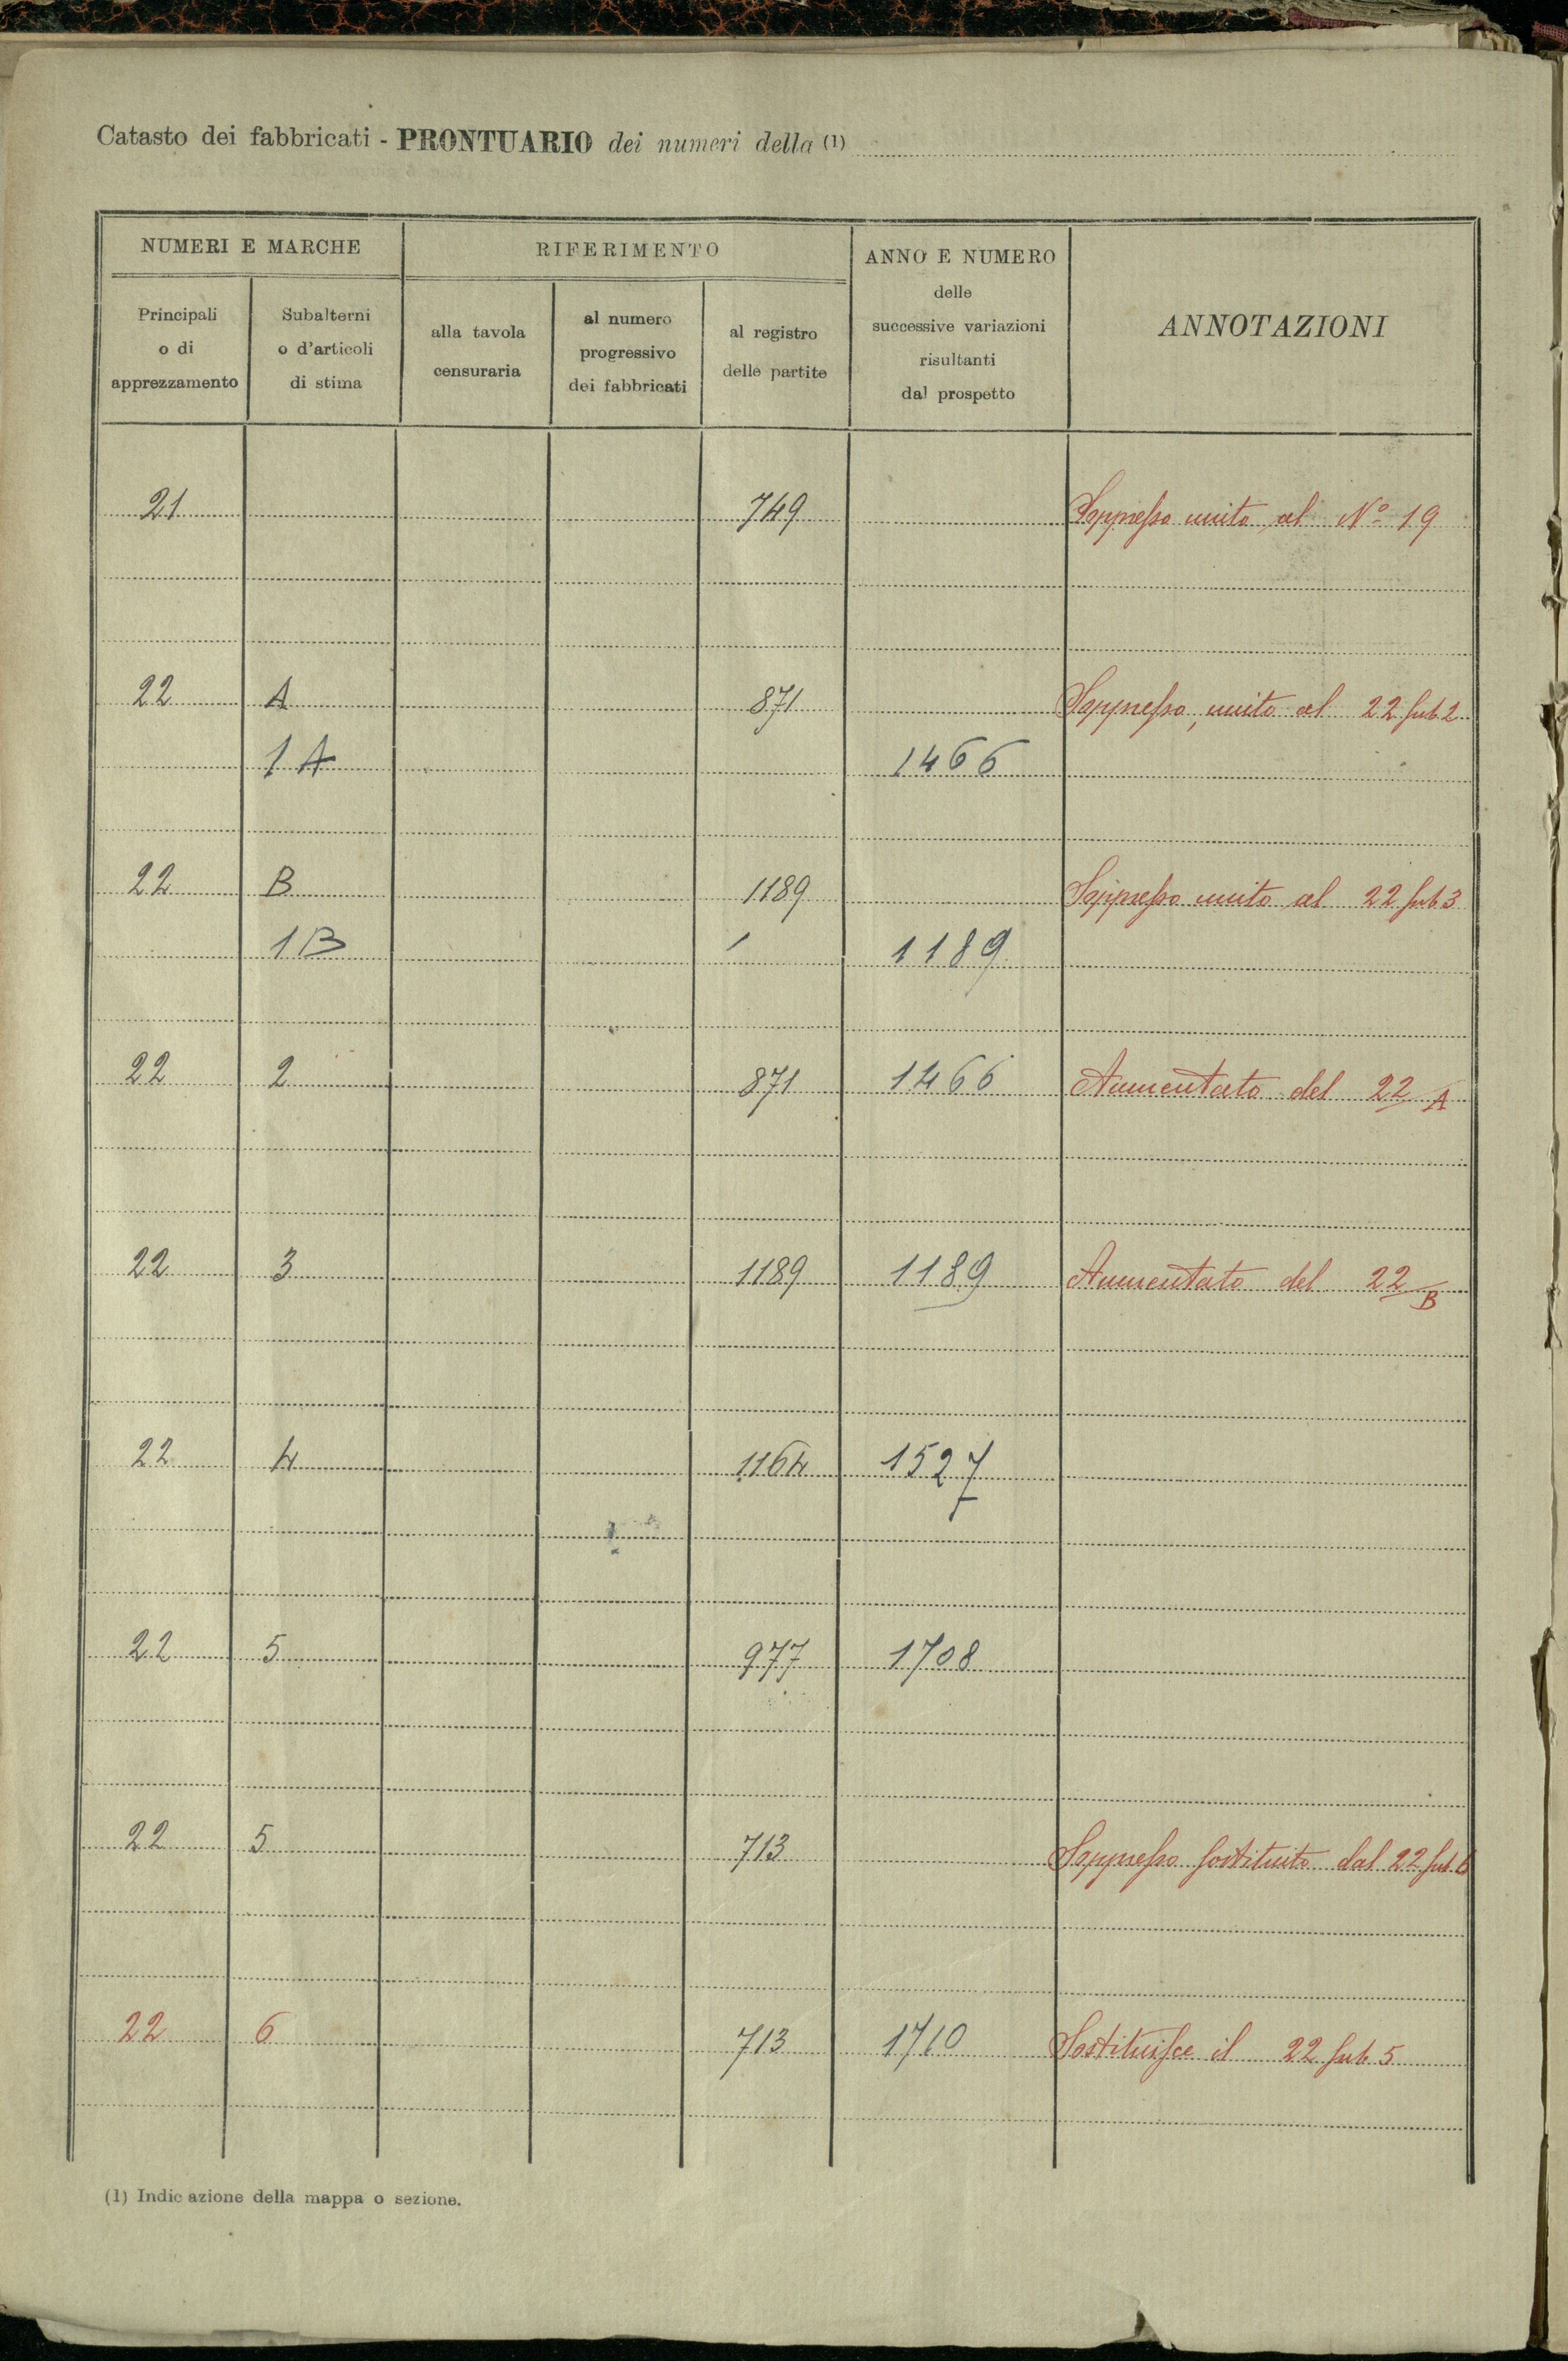 Catasto dei fabbricati - PRONTUARIO dei numeri della (1)
NUMERI E MARCHE
RIFERIMENTO
ANNO E NUMERO
delle
successive variazioni
risultanti
dal prospetto
ANNOTAZIONI
Principali
o di
apprezzamento
Subalterni
o d'articoli
di stima
alla tavola
censuraria
al numero
progressivo
dei fabbricati
al registro
delle partite
21 749 Soppresso unito al Nº 19
22 A 871 Soppresso, unito al 22 sub 2
1 A 1466
22 B 1189 Soppresso unito al 22 sub 3
1 B 1189
22 2 871 1466 Aumentato del 22 A
22 3 1189 1189 Aumentato del 22 B
22 4 1164 1527
22 5 977 1708
22 5 713 Soppresso sostituito dal 22 sub 6
22 6 713 1710 Sostituisce il 22 sub 5
(1) Indicazione della mappa o sezione.